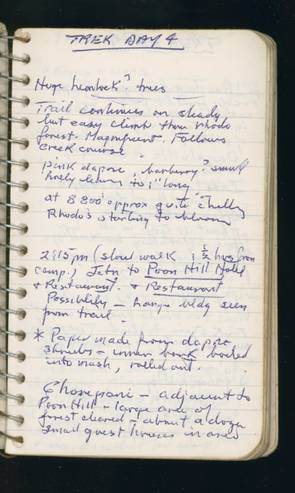 TREK DAY 4
Huge hemlock? trees
Trail continues on steady
but easy climb thru rhodo
forest. Magnificent. Follows
creek course
pink dapne, "barberry"? small
holly leaves to 1" long
at 8800 approx quite chilly
Rhodo's starting to bloom
2:15 pm (slow walk 1 ½ hrs from
camp.) Jctn to Poon Hill Hotel
& Restaurant. & Restaurant
Possibility - large bldg seen
from trail
* Paper made from dapne
shrubs - inner bark boiled
into mash, rolled out.
Ghorepani - adjacent to
Poon Hill - large area of
forest cleared - about a dozen
small guest houses in area